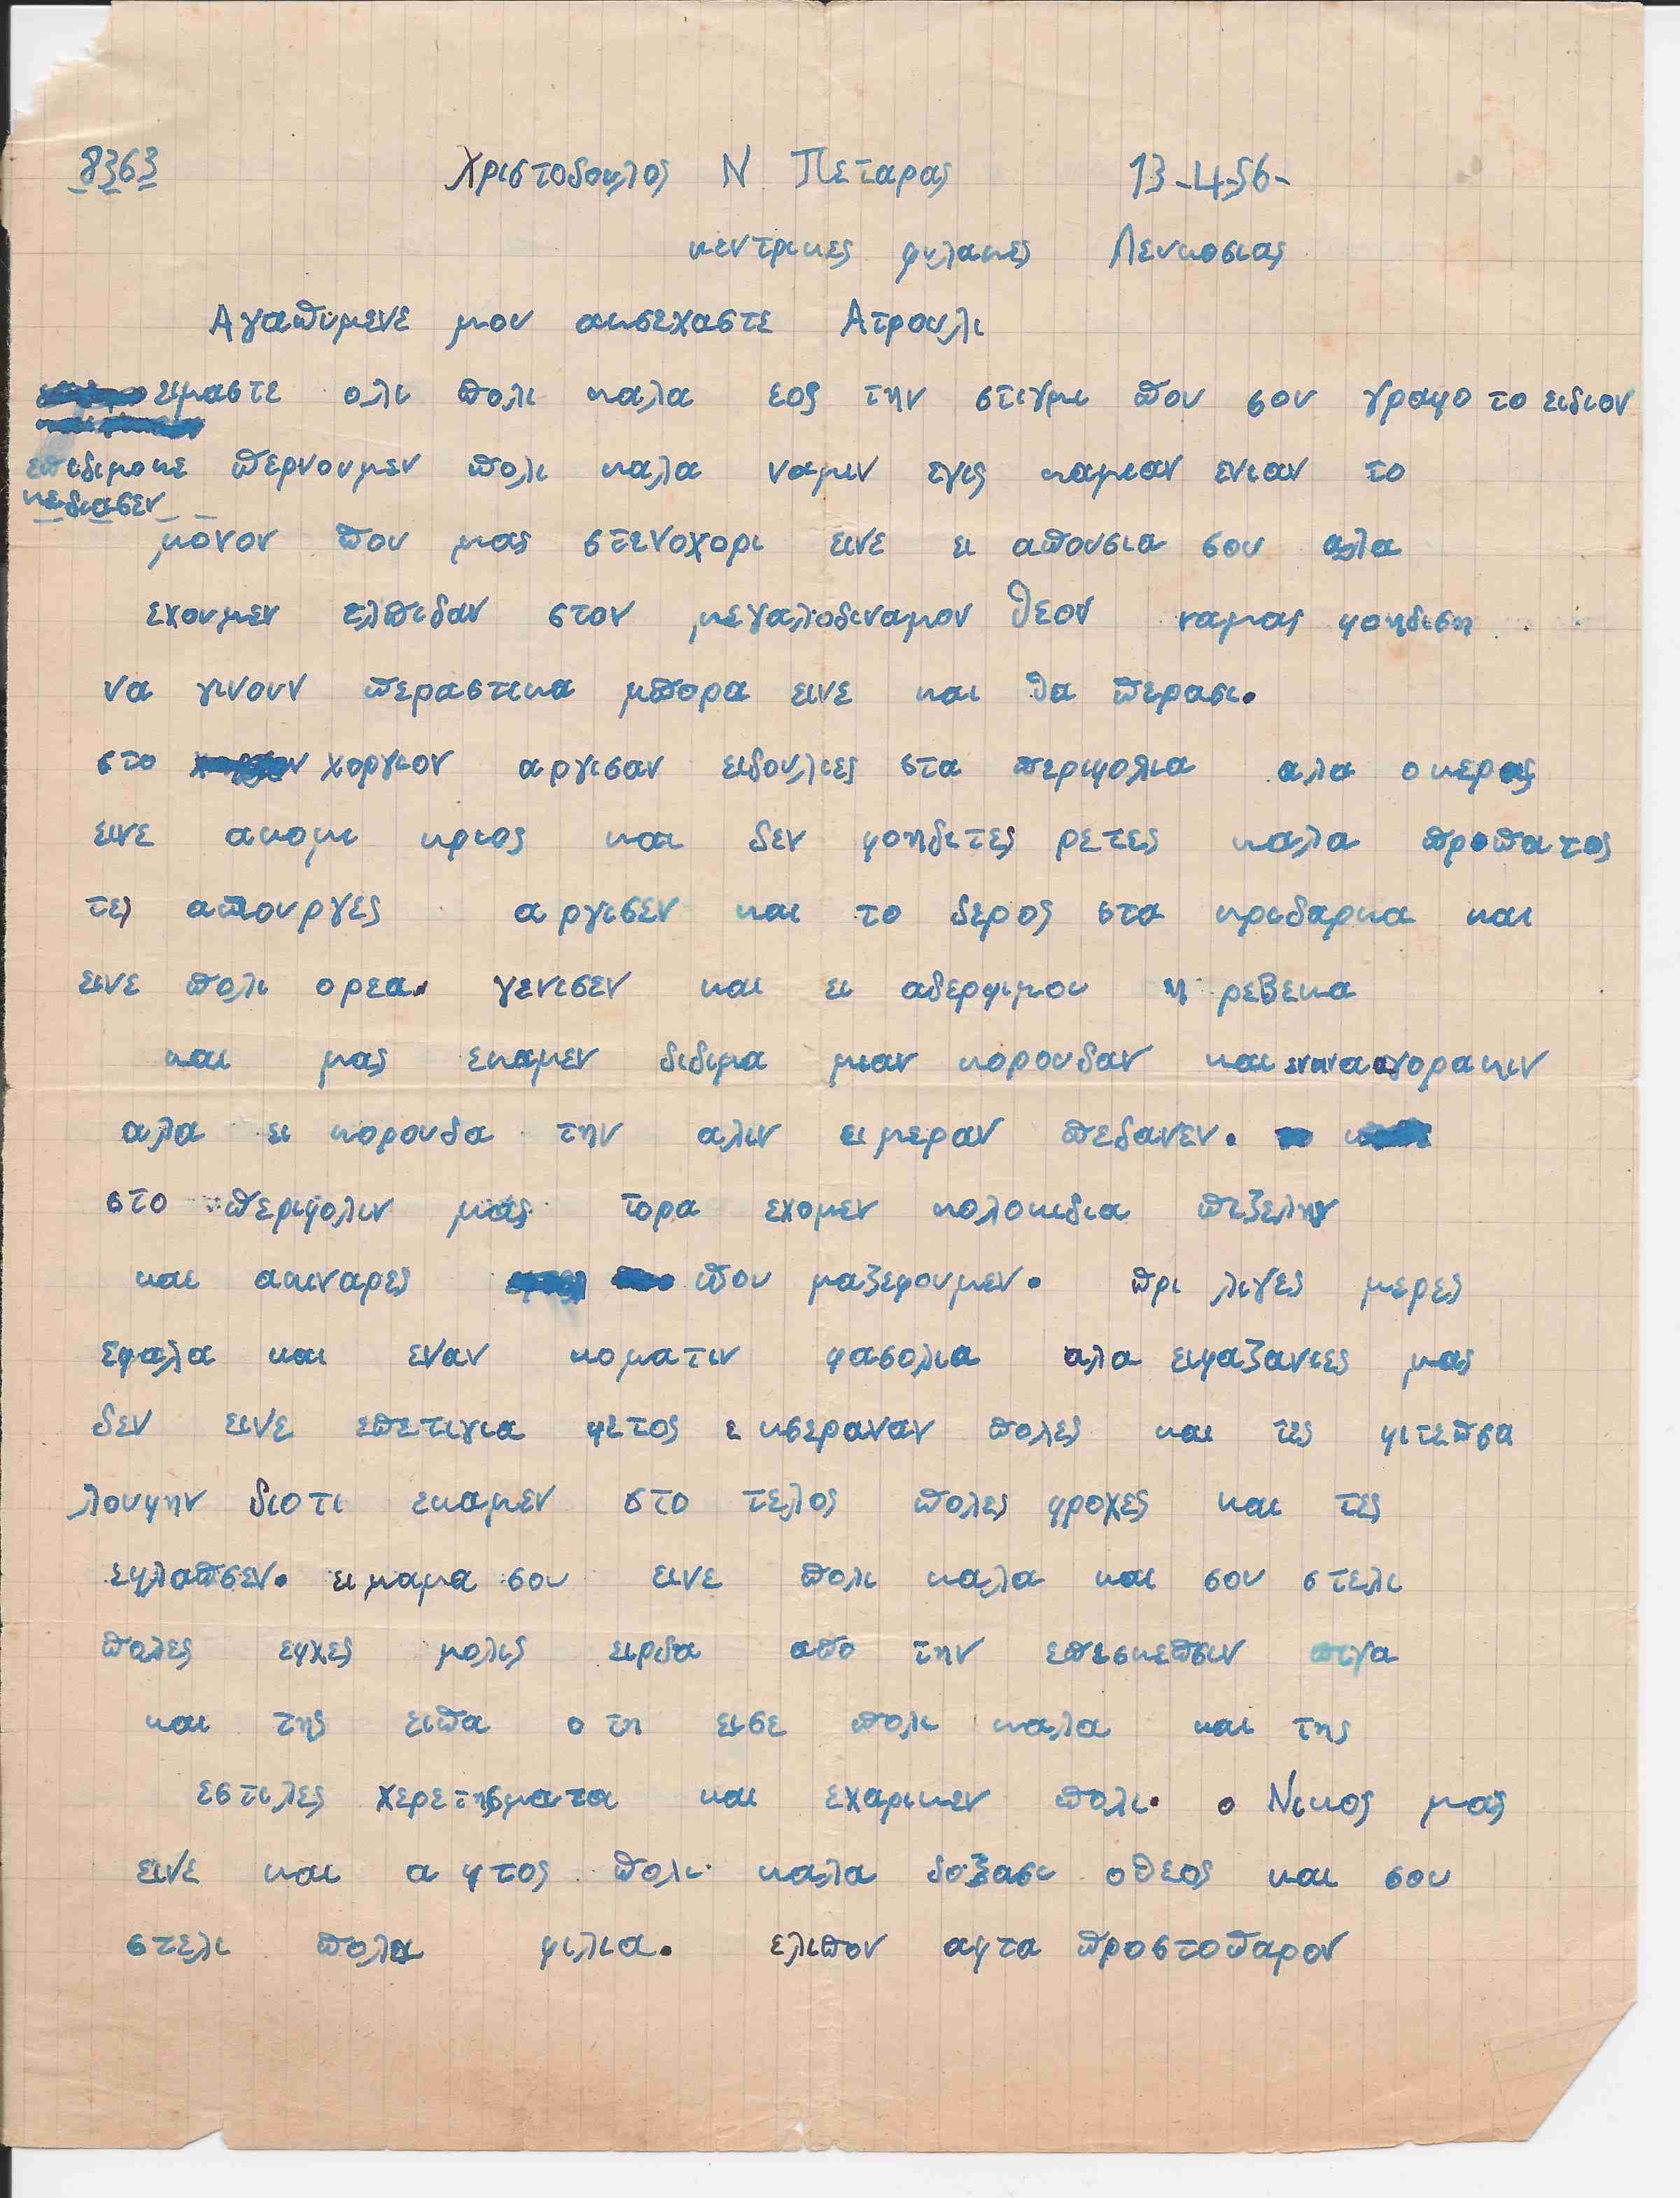 8363 Χριστοδουλος Ν Πεταρας 13-4-56-
κεντρικες φυλακες Λευκοσιας
Αγαπυμενε μου ακσεχαστε Ατρουλι
ειμαστε ολι πολι καλα εος την στιγμι που σου γραφο το ειδιον
επιδιμοκε περνουμεν πολι καλα ναμιν εγις καμιαν ενιαν το
κεδιασεν
μονον που μας στενοχορι εινε ει απουσια σου αλα
εχουμεν ελπιδαν στον μεγαλοδιναμον θεον ναμας φοηδιση
να γινουν περαστικα μπορα εινε και θα περασι.
στο χοργιον αργισαν ειδουλιες στα περιφολια αλα ο κερος
εινε ακομι κριος και δεν φοηδιτες ρετες καλα προπατος
τες απουργες αργισεν και το δερος στα κριδαρκα και
εινε πολι ορεα. γενισεν και ει αδερφιμου η ρεβεκα
και μας εκαμεν διδιμα μιαν κορουδαν και εναν αγορακιν
αλα ει κορουδα την αλιν ειμεραν πεδανεν.
στο περιφολιν μας τορα εχομεν κολοκιδια πιζελην
και ακιναρες που μαζεφουμεν. πρι λιγες μερες
εφαλα και εναν κοματιν φασολια αλα ειφαζανιες μας
δεν εινε επετιγια φετος εκσεραναν πολες και τες φιτεπσα
λουφην διοτι εκαμεν στο τελος πολες φροχες και τες
εφλαπσεν. ειμαμα σου εινε πολι καλα και σου στελι
πολες εφχες μολις ειρδα απο την επεσκεπσιν πιγα
και της ειπα οτη εισε πολι καλα και της
εστιλες χερετησματα και εχαρικεν πολι. ο Νικος μας
εινε και αφτος πολι καλα δοξασι οθεος και σου
στελι πολα φιλια. ελιπον αφτα προστοπαρον